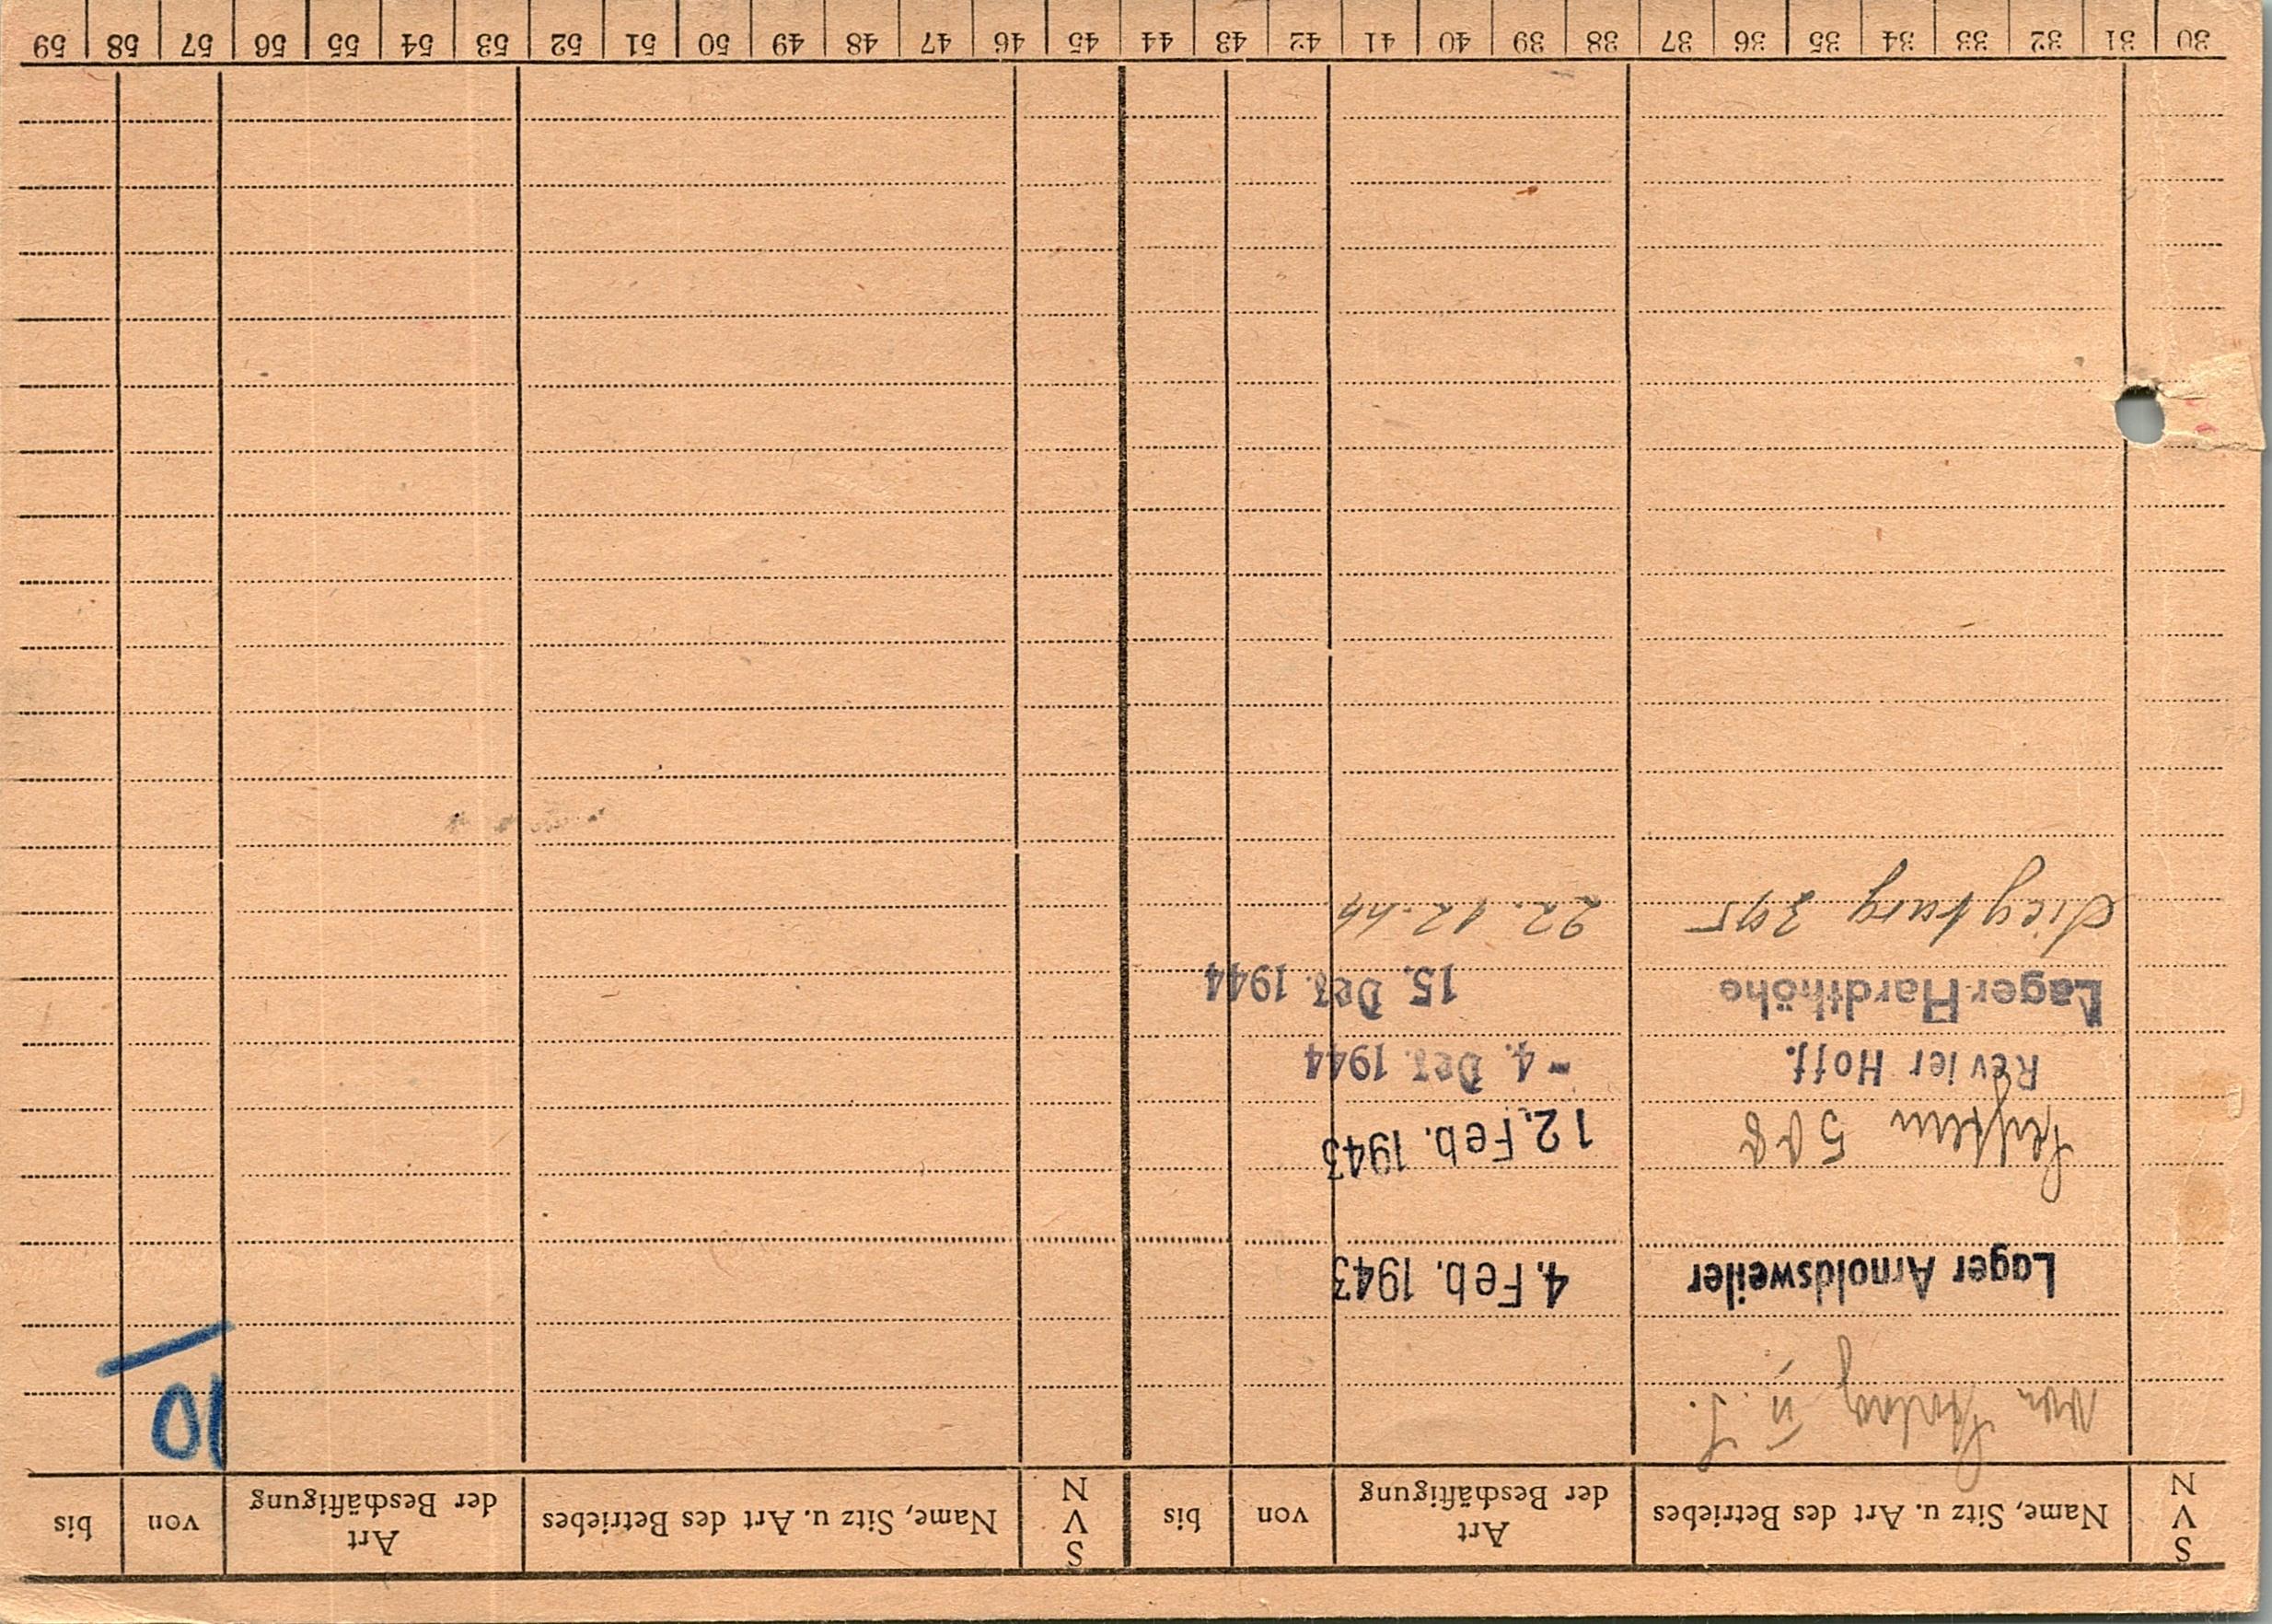 S V N Name, Sitz u. Art des Betriebes Art der Beschäftigung von bis S V N Name, Sitz u. Art des Betriebes Art der Beschäftigung von bis
von u. 10
Lager Arnoldsweiler 4. Feb. 1943
508 12. Feb. 1943
Revier Hoff. - 4. Dez. 1944
Lager Hardthöhe 15. Dez. 1944
Siegburg 395 22.12.44
30 31 32 33 34 35 36 37 38 39 40 41 42 43 44 45 46 47 48 49 50 51 52 53 54 55 56 57 58 59